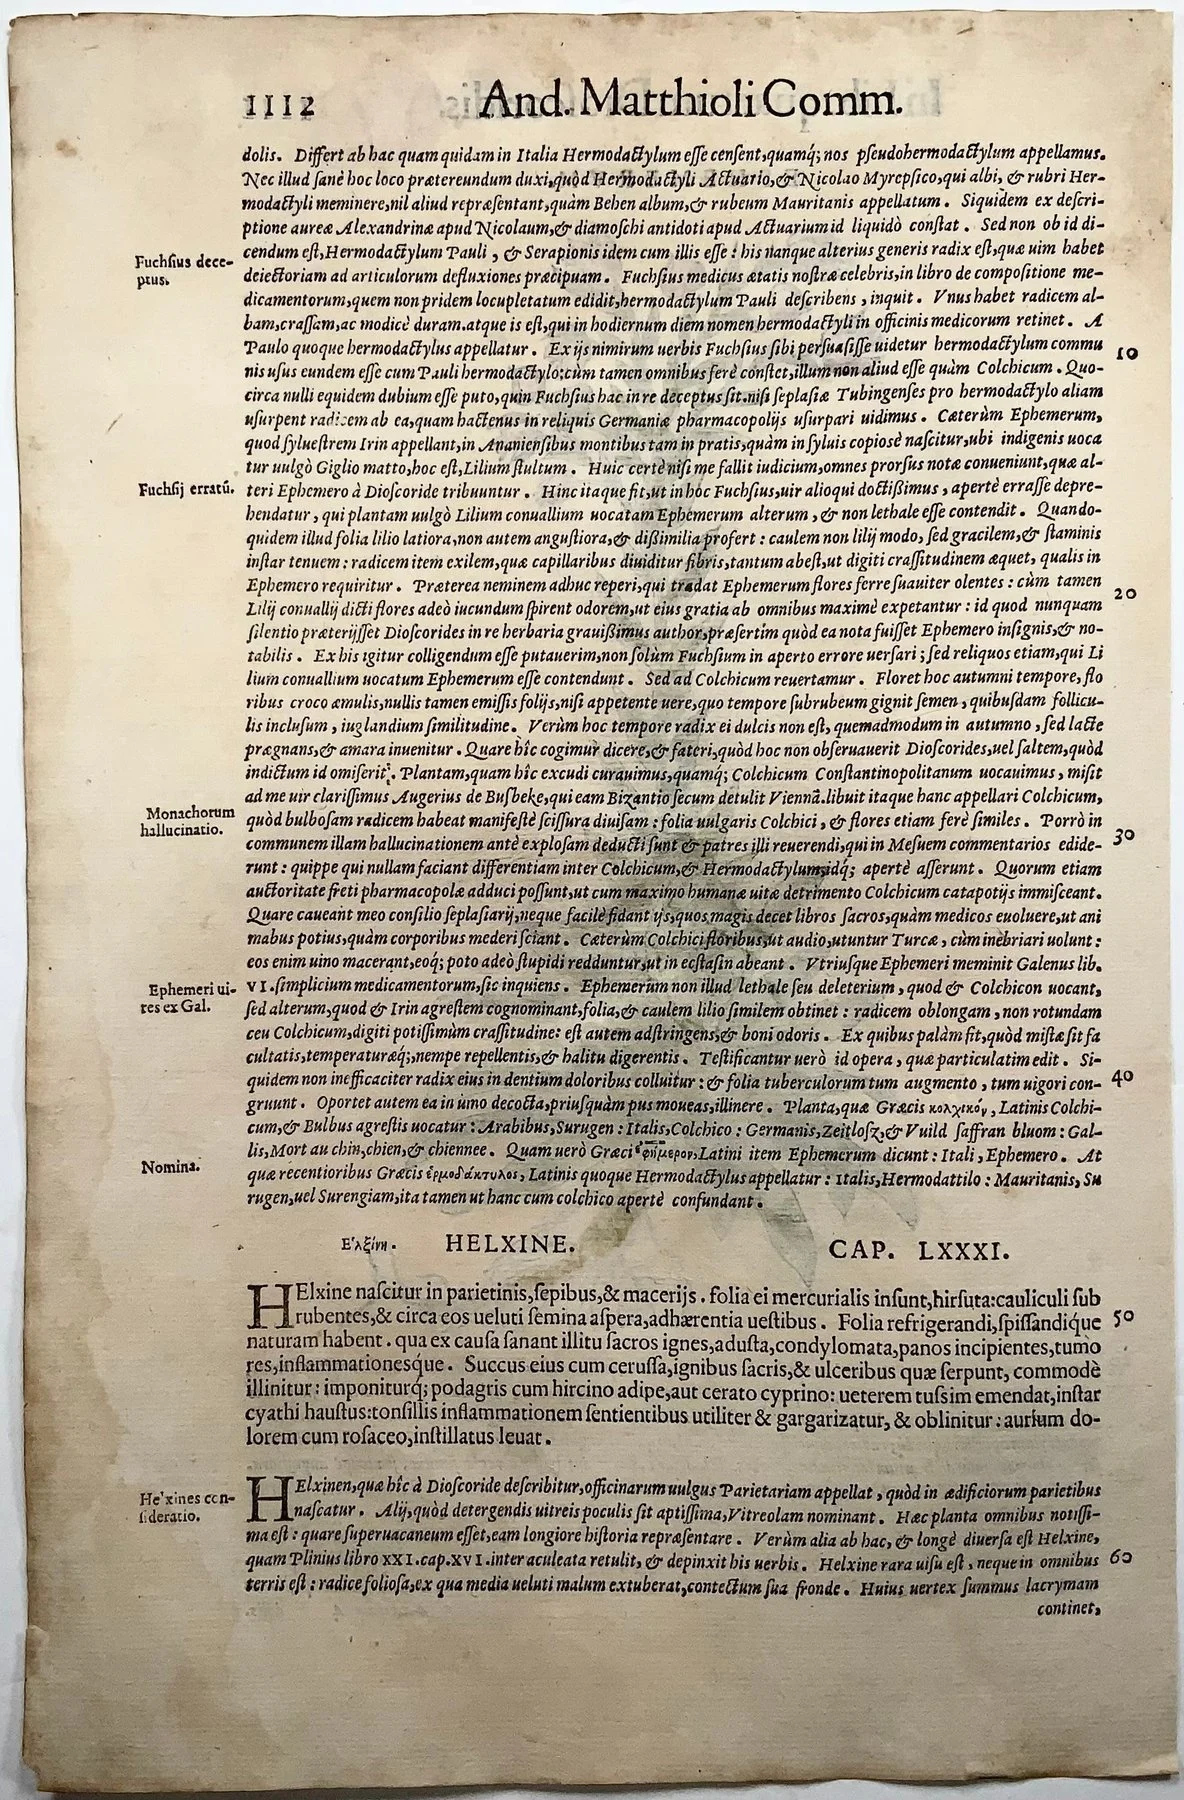 1112 And. Matthioli Comm.
dolis. Differt ab hac quam quidam in Italia Hermodactylum esse censent, quamq́; nos pseudohermodactylum appellamus.
Nec illud sanè hoc loco prætereundum duxi, quòd Hermodactyli Actuario, & Nicolao Myrepsico, qui albi, & rubri Her-
modactyli meminere, nil aliud repræsentant, quàm Behen album, & rubeum Mauritanis appellatum. Siquidem ex descri-
ptione aureæ Alexandrinæ apud Nicolaum, & diamoschi antidoti apud Actuarium id liquidò constat. Sed non ob id di-
cendum est, Hermodactylum Pauli, & Serapionis idem cum illis esse: his nanque alterius generis radix est, quæ uim habet
Fuchsius dece-
ptus.
deiectoriam ad articulorum defluxiones præcipuam. Fuchsius medicus ætatis nostræ celebris, in libro de compositione me-
dicamentorum, quem non pridem locupletatum edidit, hermodactylum Pauli describens, inquit. Vnus habet radicem al-
bam, crassam, ac modicè duram. atque is est, qui in hodiernum diem nomen hermodactyli in officinis medicorum retinet. A
Paulo quoque hermodactylus appellatur. Ex ijs nimirum uerbis Fuchsius sibi persuasisse uidetur hermodactylum commu 10
nis usus eundem esse cum Pauli hermodactylo: cùm tamen omnibus ferè constet, illum non aliud esse quàm Colchicum. Quo-
circa nulli equidem dubium esse puto, quin Fuchsius hac in re deceptus sit. nisi seplasiæ Tubingenses pro hermodactylo aliam
usurpent radicem ab ea, quam hactenus in reliquis Germaniæ pharmacopolijs usurpari uidimus. Cæterùm Ephemerum,
quod syluestrem Irin appellant, in Ananiensibus montibus tam in pratis, quàm in syluis copiosè nascitur, ubi indigenis uoca
tur uulgò Giglio matto, hoc est, Lilium stultum. Huic certè nisi me fallit iudicium, omnes prorsus notæ conueniunt, quæ al-
Fuchsij erratū.
teri Ephemero à Dioscoride tribuuntur. Hinc itaque fit, ut in hóc Fuchsius, uir alioqui doctißimus, apertè errasse depre-
hendatur, qui plantam uulgò Lilium conuallium uocatam Ephemerum alterum, & non lethale esse contendit. Quando-
quidem illud folia lilio latiora, non autem angustiora, & dißimilia profert: caulem non lilij modo, sed gracilem, & staminis
instar tenuem: radicem item exilem, quæ capillaribus diuiditur fibris, tantum abest, ut digiti crassitudinem æquet, qualis in
Ephemero requiritur. Præterea neminem adhuc reperi, qui tradat Ephemerum flores ferre suauiter olentes: cùm tamen 20
Lilij conuallij dicti flores adeò iucundum spirent odorem, ut eius gratia ab omnibus maximè expetantur: id quod nunquam
silentio præterijsset Dioscorides in re herbaria grauißimus author, præsertim quòd ea nota fuisset Ephemero insignis, & no-
tabilis. Ex his igitur colligendum esse putauerim, non solùm Fuchsium in aperto errore uersari; sed reliquos etiam, qui Li
lium conuallium uocatum Ephemerum esse contendunt. Sed ad Colchicum reuertamur. Floret hoc autumni tempore, flo
ribus croco æmulis, nullis tamen emissis folijs, nisi appetente uere, quo tempore subrubeum gignit semen, quibusdam follicu-
lis inclusum, iuglandium similitudine. Verùm hoc tempore radix ei dulcis non est, quemadmodum in autumno, sed lacte
prægnans, & amara inuenitur. Quare hîc cogimur dicere, & fateri, quòd hoc non obseruauerit Dioscorides, uel saltem, quòd
indictum id omiserit. Plantam, quam hîc excudi curauimus, quamq́; Colchicum Constantinopolitanum uocauimus, misit
ad me uir clarissimus Augerius de Busbeke, qui eam Bizantio secum detulit Viennã. libuit itaque hanc appellari Colchicum,
Monachorum
hallucinatio.
quòd bulbosam radicem habeat manifestè scissura diuisam: folia uulgaris Colchici, & flores etiam ferè similes. Porrò in
communem illam hallucinationem antè explosam deducti sunt & patres illi reuerendi, qui in Mesuem commentarios edide- 30
runt: quippe qui nullam faciant differentiam inter Colchicum, & Hermodactylum, idq́; apertè asserunt. Quorum etiam
auctoritate freti pharmacopolæ adduci possunt, ut cum maximo humanæ uitæ detrimento Colchicum catapotijs immisceant.
Quare caueant meo consilio seplasiarij, neque facilè fidant ijs, quos magis decet libros sacros, quàm medicos euoluere, ut ani
mabus potius, quàm corporibus mederi sciant. Cæterùm Colchici floribus, ut audio, utuntur Turcæ, cùm inebriari uolunt:
eos enim uino macerant, eoq́; poto adeò stupidi redduntur, ut in ecstasin abeant. Vtriusque Ephemeri meminit Galenus lib.
Ephemeri ui-
res ex Gal.
VI. simplicium medicamentorum, sic inquiens. Ephemerum non illud lethale seu deleterium, quod & Colchicon uocant,
sed alterum, quod & Irin agrestem cognominant, folia, & caulem lilio similem obtinet: radicem oblongam, non rotundam
ceu Colchicum, digiti potissimùm crassitudine: est autem adstringens, & boni odoris. Ex quibus palàm fit, quòd mistæ sit fa
cultatis, temperaturæq́;, nempe repellentis, & halitu digerentis. Testificantur uerò id opera, quæ particulatim edit. Si-
quidem non inefficaciter radix eius in dentium doloribus colluitur: & folia tuberculorum tum augmento, tum uigori con- 40
gruunt. Oportet autem ea in uino decocta, priusquàm pus moueas, illinere. Planta, quæ Græcis κολχικόν, Latinis Colchi-
cum, & Bulbus agrestis uocatur: Arabibus, Surugen: Italis, Colchico: Germanis, Zeitlosz, & Vuild saffran bluom: Gal-
lis, Mort au chin, chien, & chiennee. Quam uerò Græci ἐφήμερον, Latini item Ephemerum dicunt: Itali, Ephemero. At
Nomina.
quæ recentioribus Græcis ἑρμοδάκτυλος, Latinis quoque Hermodactylus appellatur: Italis, Hermodattilo: Mauritanis, Su
rugen, uel Surengiam, ita tamen ut hanc cum colchico apertè confundant.
Ἑλξίνη. HELXINE. CAP. LXXXI.
HElxine nascitur in parietinis, sepibus, & macerijs. folia ei mercurialis insunt, hirsuta: cauliculi sub
rubentes, & circa eos ueluti semina aspera, adhærentia uestibus. Folia refrigerandi, spissandique 50
naturam habent. qua ex causa sanant illitu sacros ignes, adusta, condylomata, panos incipientes, tumo
res, inflammationesque. Succus eius cum cerussa, ignibus sacris, & ulceribus quæ serpunt, commodè
illinitur: imponiturq́; podagris cum hircino adipe, aut cerato cyprino: ueterem tussim emendat, instar
cyathi haustus: tonsillis inflammationem sentientibus utiliter & gargarizatur, & oblinitur: aurium do-
lorem cum rosaceo, instillatus leuat.
Helxines con-
sideratio.
HElxinen, quæ hîc à Dioscoride describitur, officinarum uulgus Parietariam appellat, quòd in ædificiorum parietibus
nascatur. Alij, quòd detergendis uitreis poculis sit aptissima, Vitreolam nominant. Hæc planta omnibus notissi-
ma est: quare superuacaneum esset, eam longiore historia repræsentare. Verùm alia ab hac, & longè diuersa est Helxine,
quam Plinius libro XXI. cap. XVI. inter aculeata retulit, & depinxit his uerbis. Helxine rara uisu est, neque in omnibus 60
terris est: radice foliosa, ex qua media ueluti malum extuberat, contectum sua fronde. Huius uertex summus lacrymam
continet,